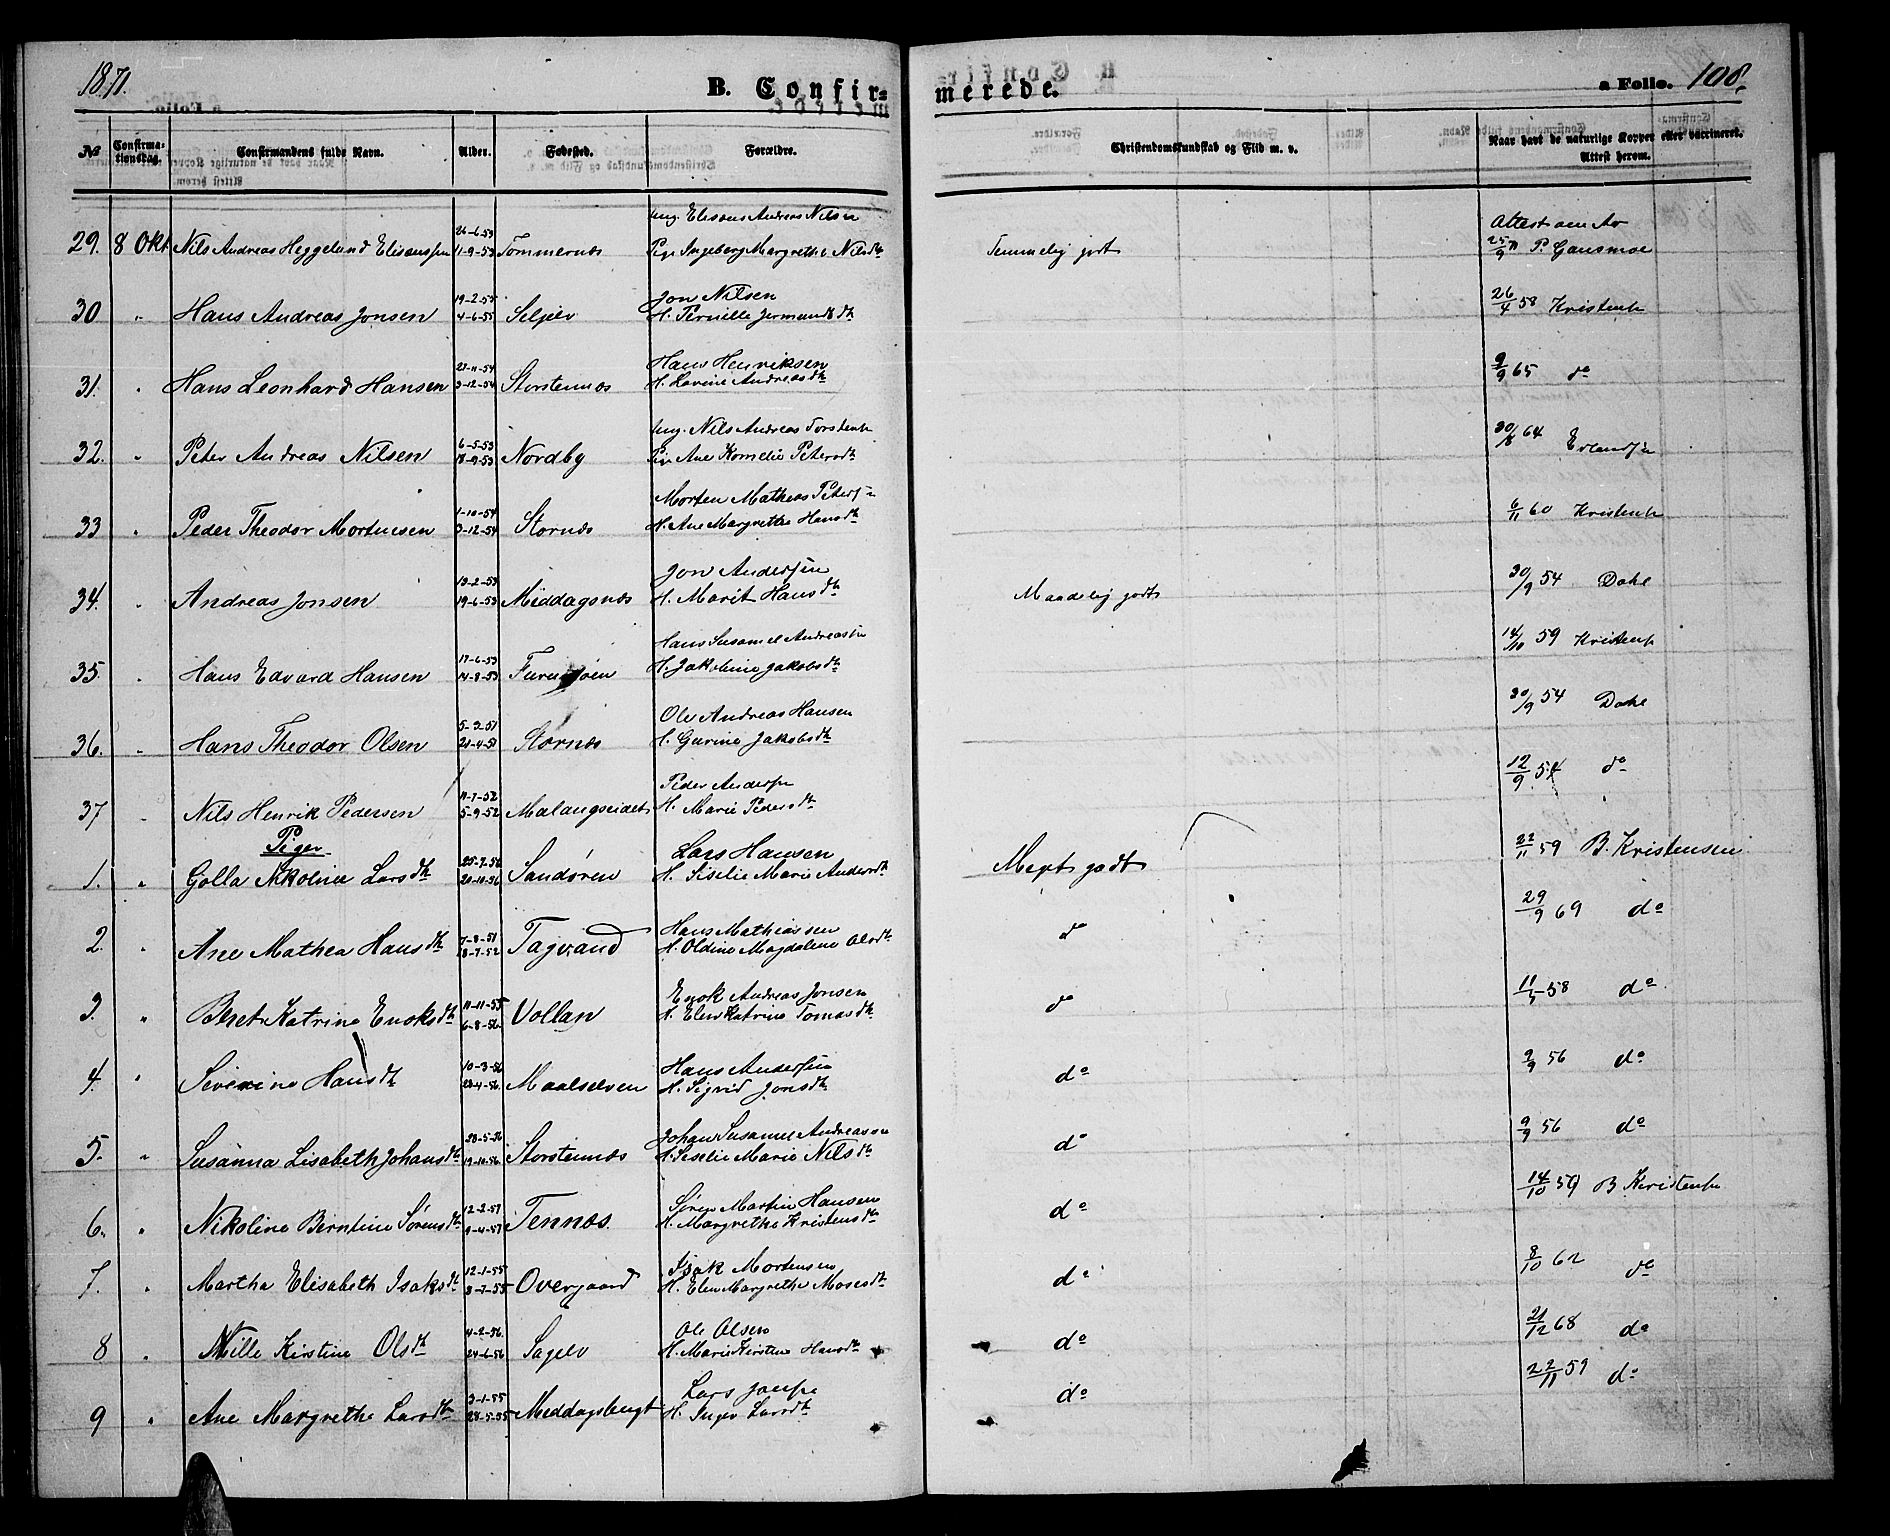 1871.
B. Confir=
merede.
a Folio. 108.
No
Confirma-
tionsdag.
Confirmandens fulde Navn.
Alder.
Fødested.
Forældre.
Christendomskundskab og Flid m. v.
Naar havt de naturlige Kopper eller vaccineret.
Attest herom.
29. 8 Okt. Nils Andreas Heggelund Eliseussen 11-9-53 Tommernes
Ung. Eliseus Andreas Nilsen
Pige Ingeborg Margrethe Nilsdtr
Temmelig godt
Attest
25/9 71 P. Gausmoe
30 " Hans Andreas Jonsen 19-2-55 4-6-55 Seljelv
Jon Nilsen
H. Pernille Jermundsdtr
26/4 58 Kristensen
31. " Hans Leonhard Hansen 3-12-54 Storstennes
Hans Henriksen
H. Lavine Andreasdtr
9/9 65 do
32. " Peter Andreas Nilsen 6-5-53 18-9-53 Nordby
Ung. Nils Andreas Torstensen
Pige Ane Kornelie Petersdtr
30/8 64 Erlandsen
33 " Peder Theodor Mortensen 1-10-54 3-12-54 Stornes
Morten Mathias Petersen
H. Ane Margrethe Hansdtr
6/11 60 Kristensen
34. " Andreas Jonsen 13-2-53 19-6-53 Middagsnes
Jon Andersen
H. Marit Hansdtr
Maadelig godt
30/9 54 Dahl
35. " Hans Edvard Hansen 17-6-53 14-8-53
Hans Susamel Andreassen
H. Jakobine Jakobsdtr
14/10 59 Kristensen
36. " Hans Theodor Olsen 5-2-51 21-4-51 Stornes
Ole Andreas Hansen
H. Gurine Jakobsdtr
30/9 54 Dahl
37 " Nils Henrik Pedersen 11-7-52 5-9-52 Malangseidet
Peder Andersen
H. Marie Pedersdtr
12/9 54 do
Piger
1. " Golla Nikoline Larsdtr 25-7-56 20-10-56 Sandøren
Lars Hansen
H. Siselie Marie Andersdtr
Meget godt
22/11 59 B. Kristensen
2. " Ane Mathea Hansdtr 7-8-51 18-7-52 Tagvand
Hans Mathiassen
H. Oldine Magdalene Olsdtr
do
29/9 69 do
3. " Beret Katrine Enoksdtr 11-11-55 6-8-56 Vollan
Enok Andreas Jonsen
H. Elen Katrine Tomasdtr
do
11/5 58 do
4. " Severine Hansdtr 10-3-56 23-4-56. Maalselven
Hans Andersen
H. Sigrid Jonsdtr
do
9/9 56 do
5. " Susanna Lisabeth Johansdtr 23-5-56 19-10-56. Storstennes
Johan Susamel Andreassen
H. Siselie Marie Nilsdtr
do
9/9 56 do
6. " Nikoline Berntine Sørensdtr 12-2-57 9-4-57 Tennes.
Søren Martin Hansen
H. Margrethe Kristensdtr
do
14/10 59 B Kristensen
7. " Martha Elisabeth Isaksdtr 12-1-55 8-7-55 Overgaard
Isak Mortensen
H. Elen Margrethe Mosesdtr
do
8/10 62 do
8 " Nille Kirstine Olsdtr 4-2-56. 24-6-56 Sagelv
Ole Olsen
H. Marie Kirstine Hansdtr
do
21/12 68 do
9 " Ane Margrethe Larsdtr 3-1-55 28-5-55 Meddagsbugt
Lars Jonsen
H. Inger Larsdtr
do
22/11 59 do